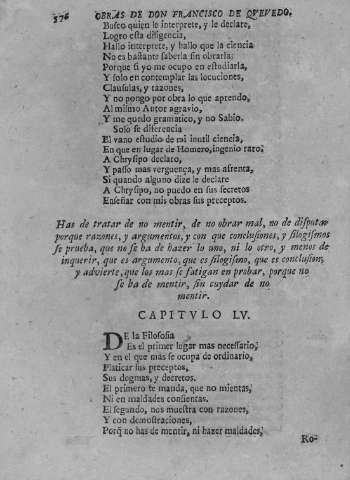 576
OBRAS DE DON FRANCISCO DE QVEVEDO.
Busco quien le interprete, y le declare,
Logro esta diligencia,
Hallo interprete, y hallo que la ciencia
No es bastante saberla sin obrarla:
Porque si yo me ocupo en estudiarla,
Y solo en contemplar las locuciones,
Clausulas, y razones,
Y no pongo por obra lo que aprendo,
Al mismo Autor agravio,
Y me quedo gramatico, y no Sabio.
Solo se diferencia
El vano estudio de mi inutil ciencia,
En que en lugar de Homero, ingenio raro,
A Chrysipo declaro,
Y passo mas verguença, y mas afrenta,
Si quando alguno dize le declare
A Chrysipo, no puedo en sus secretos
Enseñar con mis obras sus preceptos.
Has de tratar de no mentir, de no obrar mal, no de disputar
porque razones, y argumentos, y con que conclusiones, y silogismos
se prueba, que no se ha de hazer lo uno, ni lo otro, y menos de
inquerir, que es argumento, que es silogismo, que es conclusion,
y advierte, que los mas se fatigan en probar, porque no
se ha de mentir, sin cuydar de no
mentir.
CAPITVLO LV.
DE la Filosofia
Es el primer lugar mas necessario,
Y en el que más se ocupa de ordinario,
Platicar sus preceptos,
Sus dogmas, y decretos.
El primero te manda, que no mientas,
Ni en maldades consientas.
El segundo, nos muestra con razones,
Y con demostraciones,
Porq̃ no has de mentir, ni hazer maldades,
Ro-